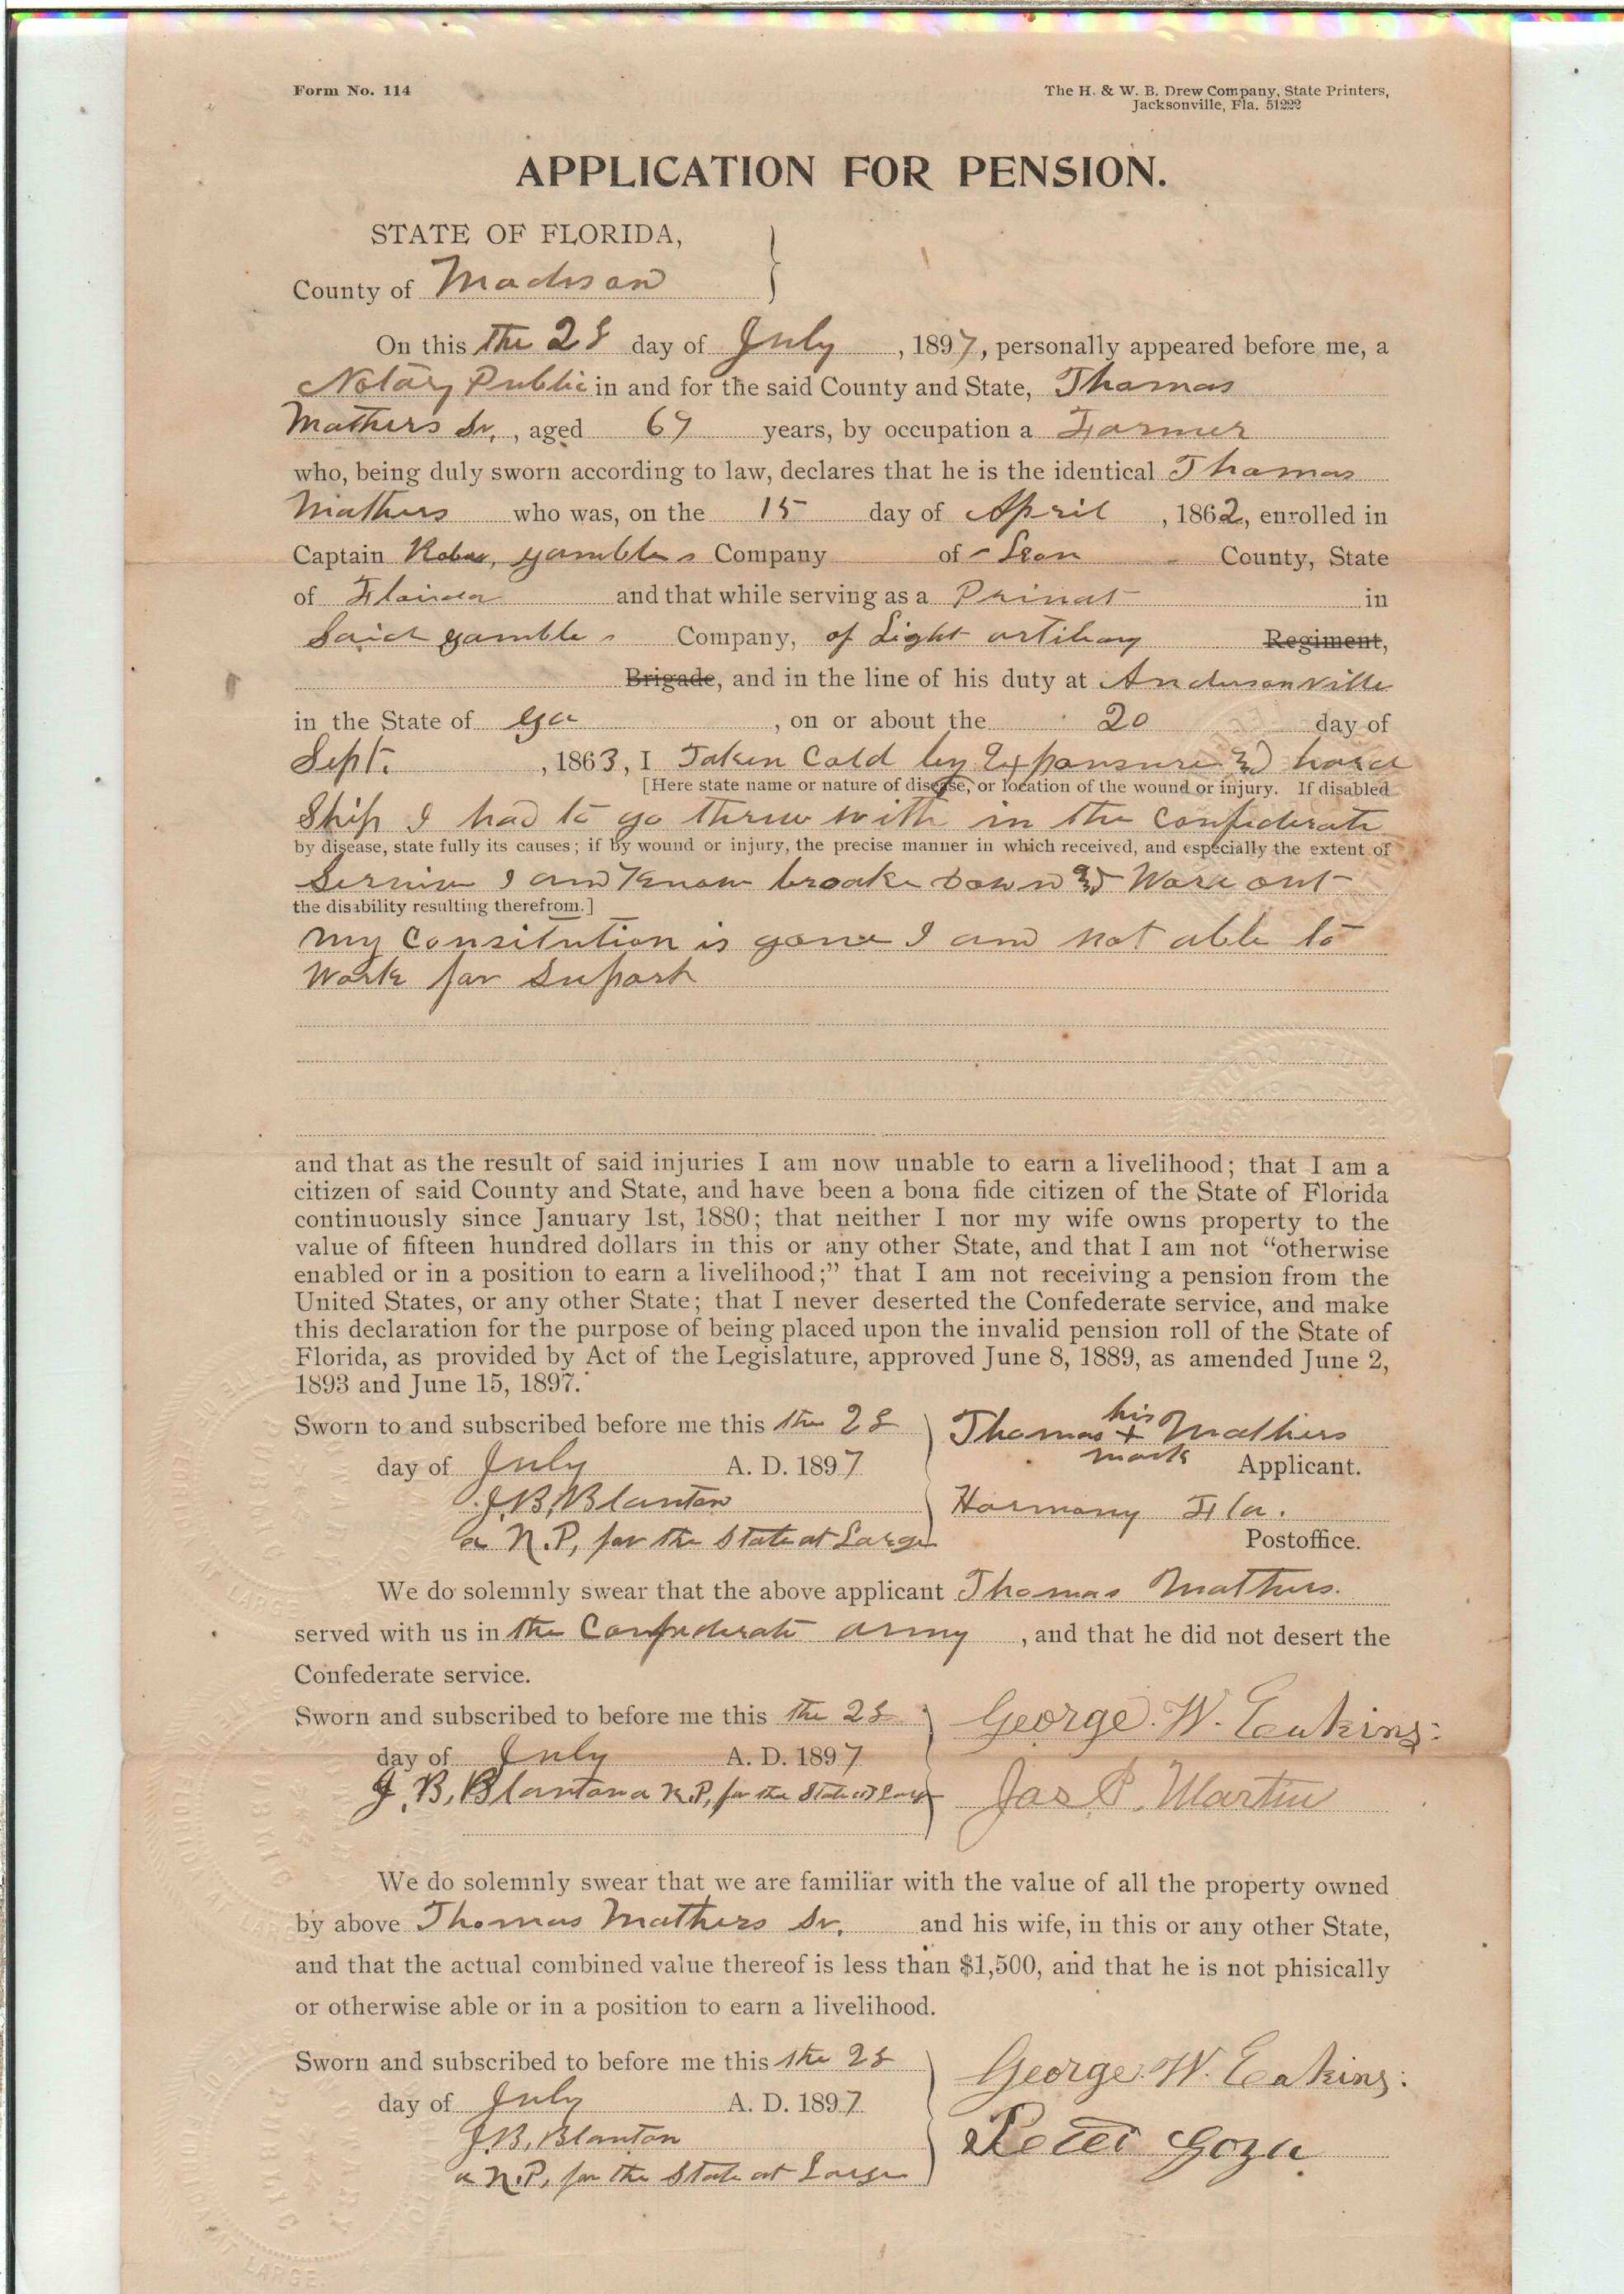 Form No. 114
The H. & W. B. Drew Company, State Printers,
Jacksonville, Fla. 51222
APPLICATION FOR PENSION.
STATE OF FLORIDA,
County of Madison
On this the 28 day of July , 1897, personally appeared before me, a
Notary Public in and for the said County and State, Thomas
Mathers Sr. , aged 69 years, by occupation a Farmer
who, being duly sworn according to law, declares that he is the identical Thomas
Mathers who was, on the 15 day of April , 1862, enrolled in
Captain gambles Company of Leon County, State
of Florida and that while serving as a Privat in
Said gambles Company, of Light artilary Regiment,
Brigade, and in the line of his duty at Andersonville
in the State of Ga , on or about the 20 day of
Sept. , 1863, I Taken Cold by Exponsure and hard
[Here state name or nature of disease, or location of the wound or injury. If disabled
Ship I had to go threw with in the Confederate
by disease, state fully its causes; if by wound or injury, the precise manner in which received, and especially the extent of
Service I am know broake down and Ware out
the disability resulting therefrom.]
my Consitution is gone I am not able to
Work for Suport
and that as the result of said injuries I am now unable to earn a livelihood; that I am a
citizen of said County and State, and have been a bona fide citizen of the State of Florida
continuously since January 1st, 1880; that neither I nor my wife owns property to the
value of fifteen hundred dollars in this or any other State, and that I am not "otherwise
enabled or in a position to earn a livelihood;" that I am not receiving a pension from the
United States, or any other State; that I never deserted the Confederate service, and make
this declaration for the purpose of being placed upon the invalid pension roll of the State of
Florida, as provided by Act of the Legislature, approved June 8, 1889, as amended June 2,
1893 and June 15, 1897.
Sworn to and subscribed before me this the 28
his
Thomas + Mathers
mark
day of July A. D. 1897
Applicant.
J. B. Blanton
Harmony Fla.
a N.P, for the State at Large
Postoffice.
We do solemnly swear that the above applicant Thomas Mathers.
served with us in the Confederate army , and that he did not desert the
Confederate service.
Sworn and subscribed to before me this the 28
George. W. Eakins:
day of July A. D. 1897
J. B, Blanton a N.P, for the State at Large
Jas P. Martin
We do solemnly swear that we are familiar with the value of all the property owned
by above Thomas Mathers Sr. and his wife, in this or any other State,
and that the actual combined value thereof is less than $1,500, and that he is not phisically
or otherwise able or in a position to earn a livelihood.
Sworn and subscribed to before me this the 28
George. W. Eakins:
day of July A. D. 1897
J. B. Blanton
Peter Goza
a N.P, for the State at Large